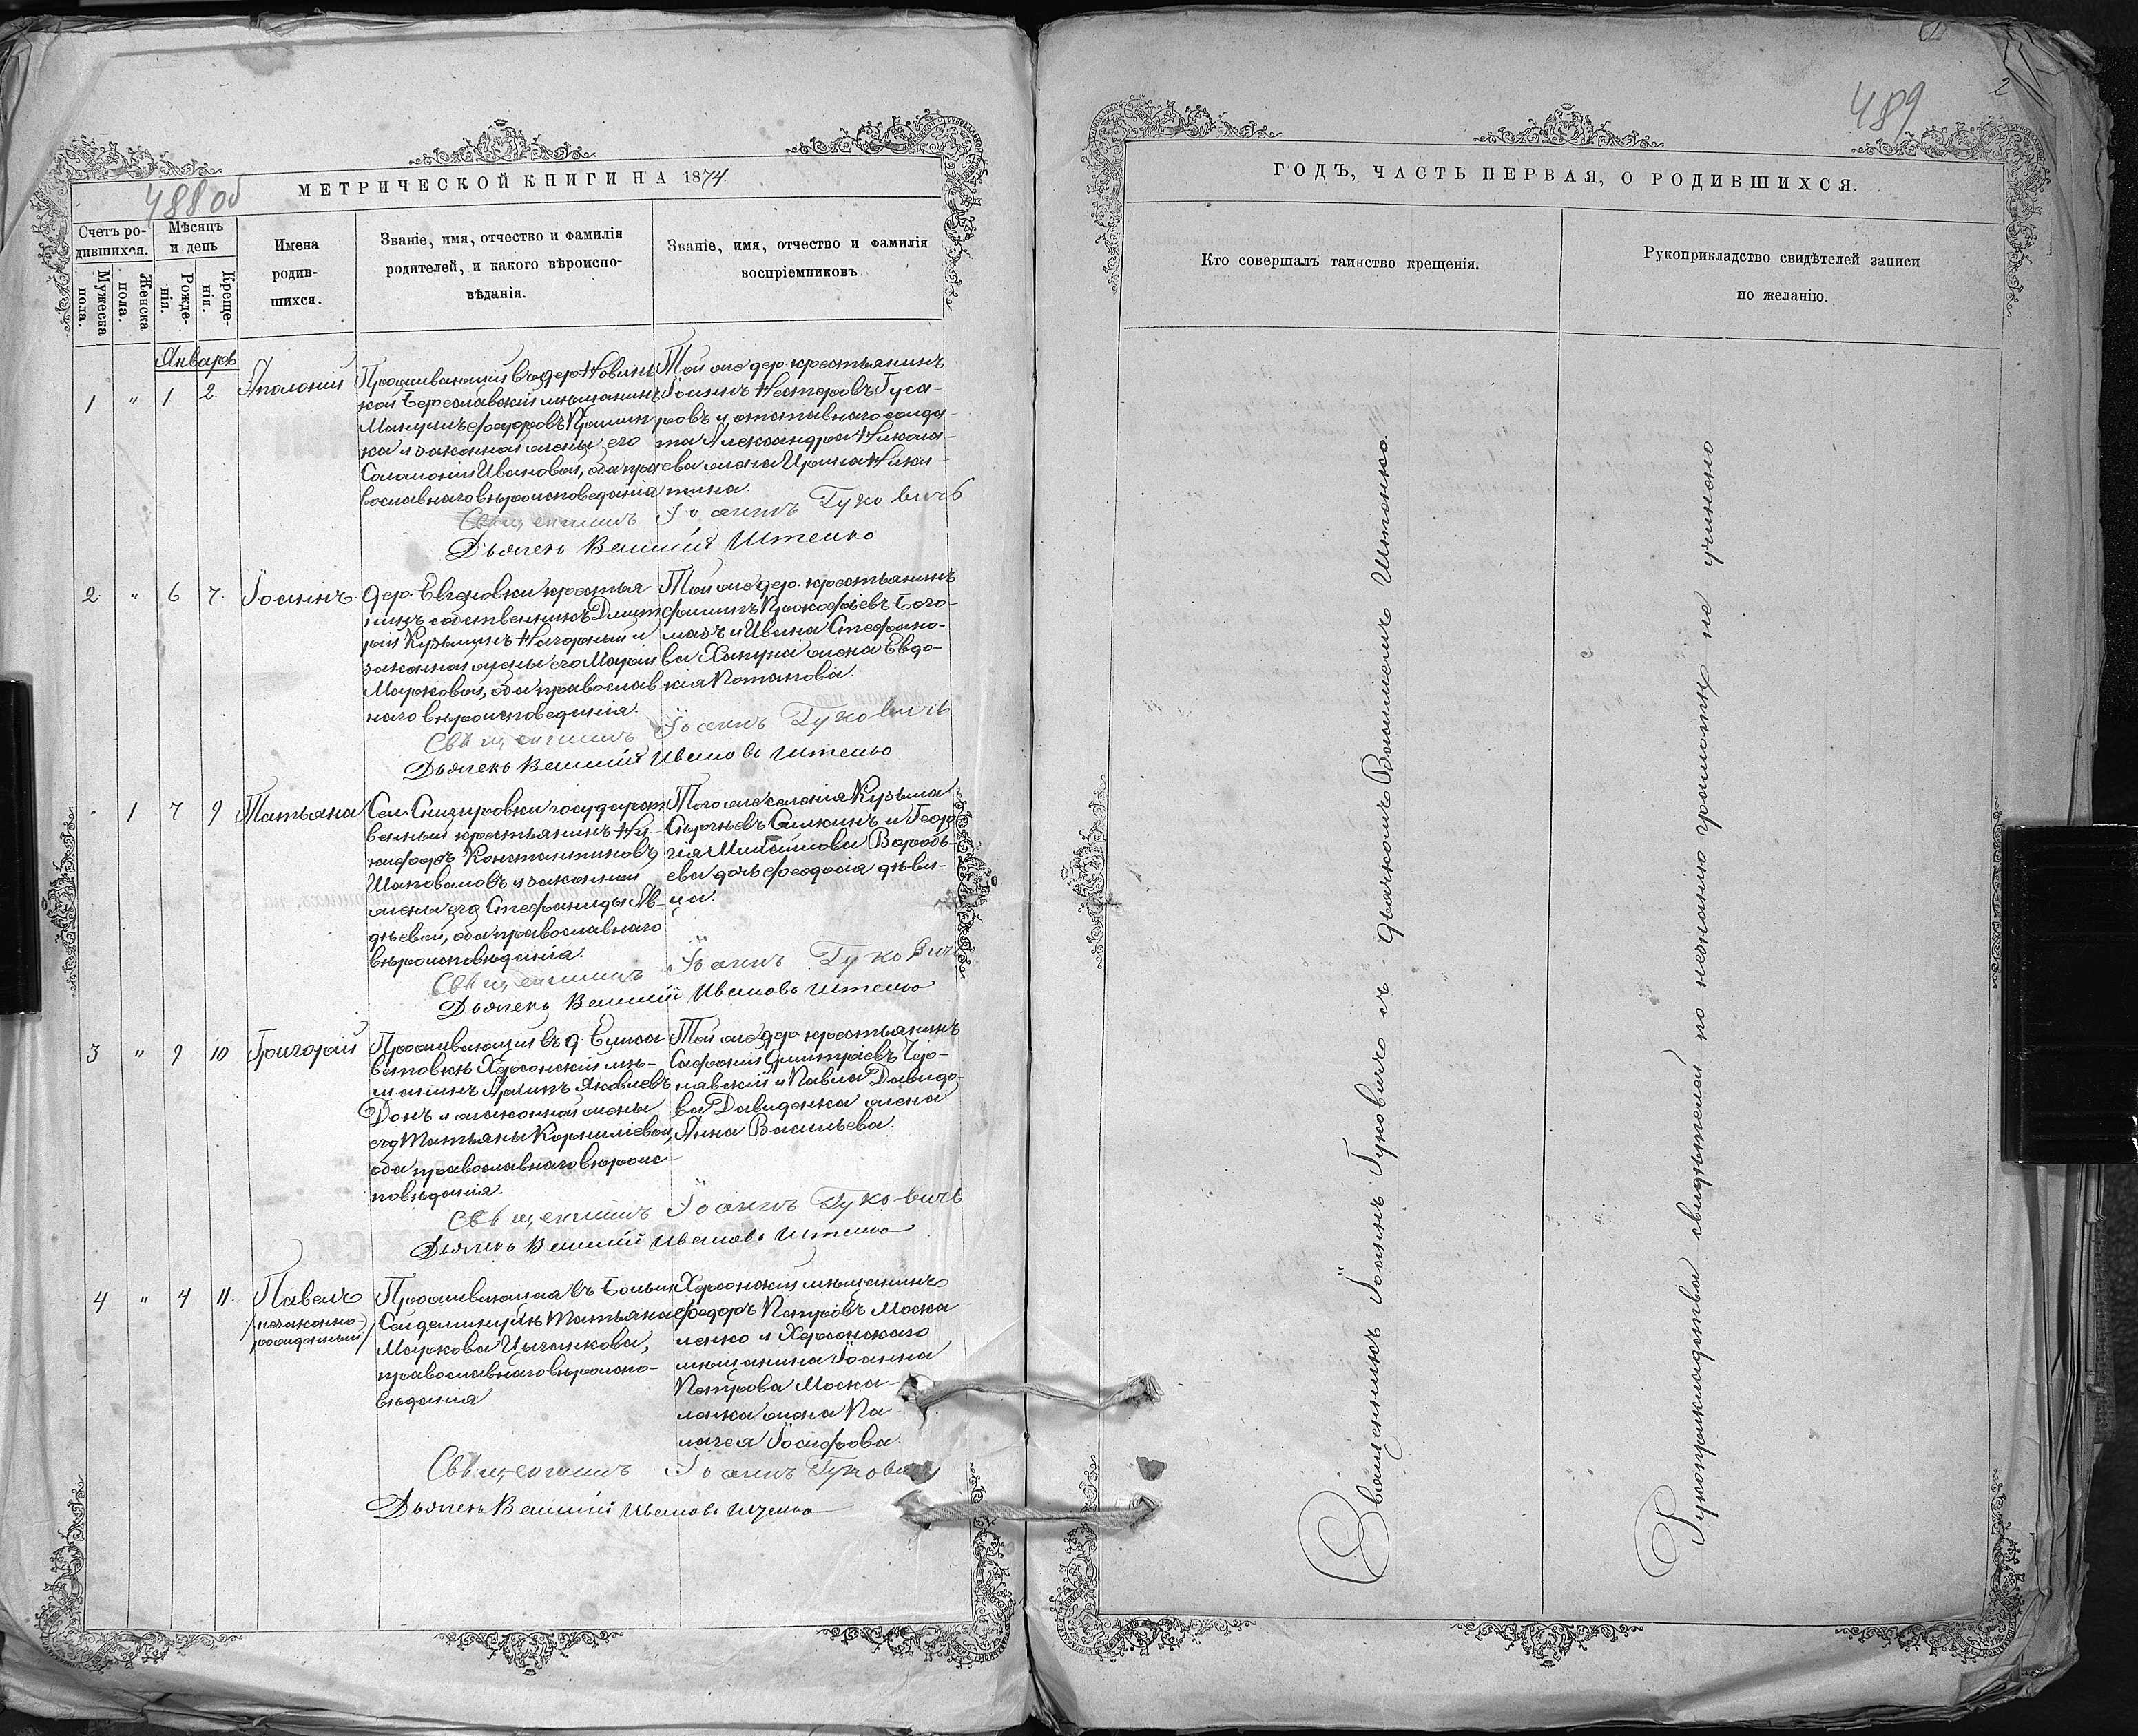 488 об
МЕТРИЧЕСКОЙ КНИГИ НА 1874
Счетъ ро-
дившихся.
Мѣсяцъ
и день
Мужеска
пола.
Женска
пола.
Рожде-
нія.
Креще-
нія.
Имена
родив-
шихся.
Званіе, имя, отчество и фамилія
родителей, и какого вѣроиспо-
вѣданія.
Званіе, имя, отчество и фамилія
воспріемниковъ.
Январь
1 " 1 2 Аполоній
Проживающій въ дер.
кой Береславскій мѣщанинъ
Мануилъ Федоровъ
ка и законная жена его
Соломонія Иванова, оба пра
вославнаго вѣроисповеданія
Той же дер. крестьянинъ
Іоаннъ Нестеровъ Гуса-
ровъ и отставнаго солда-
та Александра Никола-
ева жена Ирина Ники-
тина.
Священникъ Іоаннъ Гуковичъ
Дьячекъ Василій Штенко
2 " 6 7 Іоаннъ
Дер. Евгеновки крестья
нинъ собственникъ Дмит
рій Кузьминъ Нагорный и
законная жена его Марія
Маркова, оба православ
наго вѣроисповеданія.
Той же дер. крестьянинъ
Филипъ Прокофіевъ Бого-
мазъ и Ивана Стефано-
ва Хапуна жена Евдо-
кія Потапова.
Священникъ Іоаннъ Гуковичъ
Дьячекъ Василій Ивановъ Штенко
" 1 7 9 Татьяна
Села Снигировки государст
венный крестьянинъ Ни-
кифоръ Константиновъ
Шаповаловъ и законная
жена его Стефанида Ав-
дѣева, оба православнаго
вѣроисповѣданія.
Того же селенія Кузьма
Сергѣевъ Силкинъ и Геор
гія Михайлова Воробь-
ева дочь Феодосія дѣви-
ца.
Священникъ Іоаннъ Гуковичъ
Дьячекъ Василій Ивановъ Штенко
3 " 9 10 Григорій
Проживающій въ д. Елиса
ветовкѣ Херсонскій мѣ-
щанинъ Яковлевъ
Донъ и законная жена
его Татьяна Корниліева,
оба православнаго вѣроис-
повѣданія.
Той же дер. крестьянинъ
Сафроній Дмитріевъ Чер-
нявскій и Павла Давидо-
ва Давиденка жена
Анна Васильева.
Священникъ Іоаннъ Гуковичъ
Дьячекъ Василій Ивановъ Штенко
4 " 4 11 Павелъ
/незаконно-
рожденный/
Проживающая въ Больш
Сейдеминухѣ Татьяна
Маркова Цыганкова,
православнаго вѣроиспо-
вѣданія
Херсонскій мѣщанинъ
Федоръ Петровъ Моска
ленко и Херсонскаго
мѣщанина Іоанна
Петрова Моска-
ленка жена Па-
лагея Іосифова.
Священникъ Іоаннъ Гуковичъ
Дьячекъ Василій Ивановъ Штенко
489
2
ГОДЪ, ЧАСТЬ ПЕРВАЯ, О РОДИВШИХСЯ.
Кто совершалъ таинство крещенія.
Рукоприкладство свидѣтелей записи
по желанію.
Священникъ Іоаннъ Гуковичъ съ дьячкомъ Василіемъ Штенко.
Рукоприкладства свидѣтелей по незнанію грамоты не учинено